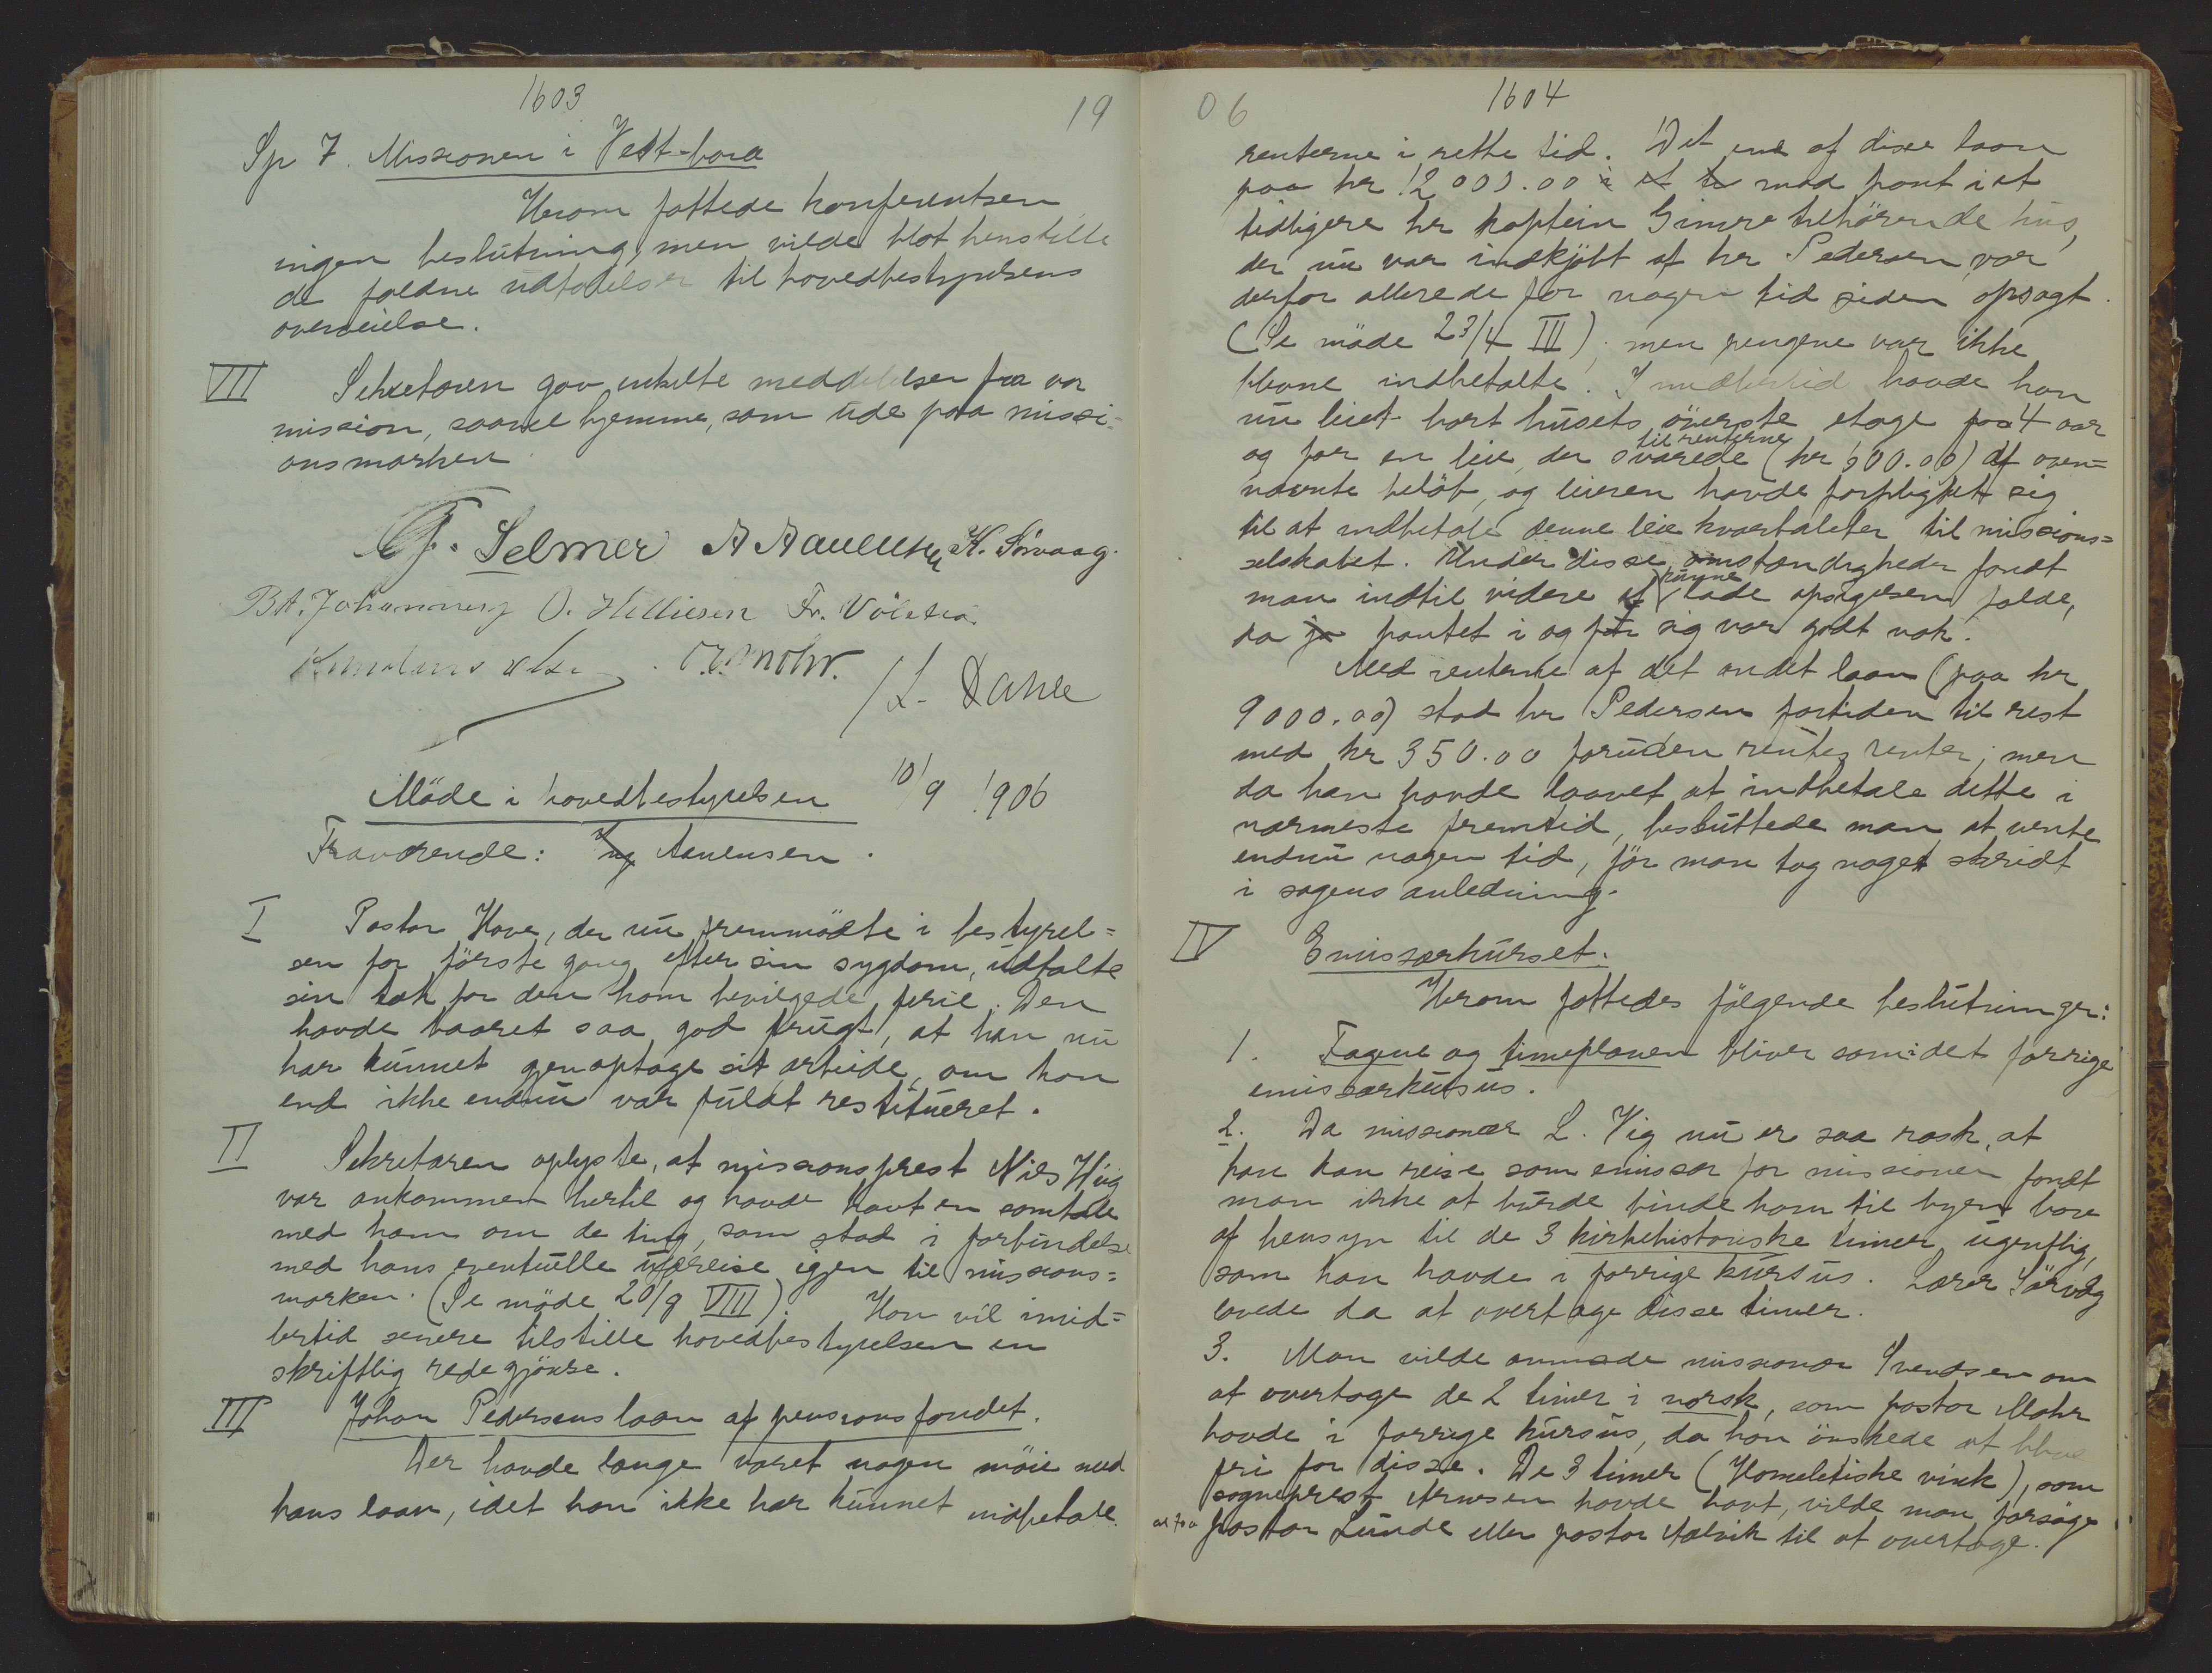 1603
19
Sp 7. Missionen i Vest-bara
Herom fattede konferentsen
ingen beslutning, men vilde blot henstille
de faldne udtalelser til hovedbestyrelsens
overveielse.
VII Sekretæren gav enkelte meddelelser fra vor
mission, saavel hjemme, som ude paa missi-
onsmarken
Selmer A Aauensen K. Sörvaag.
B.A. Johannesen O. Helliesen Fr. Völstad.
O.E. Mohr.
/L. Dahle
Möde i hovedbestyrelsen 10/9 1906
Fraværende: Aanensen.
I Pastor Hove, der nu fremmödte i bestyrel=
sen for förste gang efter sin sygdom, udtalte
sin tak for den ham bevilgede ferie. Den
havde baaret saa god frugt, at han nu
har kunnet gjenoptage sit arbeide, om han
end ikke endnu var fuldt restitueret.
II Sekretæren oplyste, at missionsprest Nils
var ankommen hertil og havde havt en samtale
med ham om de ting, som stod i forbindelse
med hans eventuelle udreise igjen til missions=
marken. (Se möde 20/9 VIII). Han vil imid=
lertid senere tilstille hovedbestyrelsen en
skriftlig redegjörelse.
III Johan Pedersens laan af pensionsfondet.
Der havde længe været nogen möie med
hans laan, idet han ikke har kunnet indbetale
06
1604
renterne i rette tid. Det ene af disse laan
paa kr 12000.00 mod pant i et
tidligere hr kaptein Gimre tilhörende hus,
der nu var indkjöbt af hr Pedersen var
derfor allerede for nogen tid siden opsagt.
(Se möde 23/4 III); men pengene var ikke
blevne indbetalte. Imidlertid havde han
nu leiet bort husets överste etage paa 4 aar
og for en leie, der svarede til renterne (kr 600.00) af oven=
nævnte belöb, og leieren havde forpligtet sig
til at indbetale denne leie kvartaleter til missions=
selskabet. Under disse omstændigheder fandt
man indtil videre at kunne lade opsigelsen falde,
da pantet i og for sig var godt nok.
Med renterne af det andet laan (paa kr
9000.00) stod hr Pedersen fortiden til rest
med kr 350.00 foruden rentes renter; men
da han havde lovet at indbetale dette i
nærmeste fremtid, besluttede man at vente
endnu nogen tid, för man tog noget skridt
i sagens anledning.
IV Emissærkurset.
Herom fattedes fölgende beslutninger:
1. Fagene og timeplanen bliver som i det forrige
emissærkursus.
2. Da missionær L. Vig nu er saa rask, at
han kan reise som emissær for missionen fandt
man ikke at burde binde ham til byen bare
af hensyn til de 3 kirkehistoriske timer ugentlig,
som han havde i forrige kursus. Lærer Sörvåg
lovede da at overtage disse timer.
3. Man vilde anmode missionær Svendsen om
at overtage de 2 timer i norsk, som pastor Mohr
havde i forrige kursus, da han önskede at blive
fri for disse. De 3 timer (Homiletiske vink), som
sogneprest Arnesen havde havt, vilde man forsöge
at faa pastor Lunde eller pastor Aalvik til at overtage.